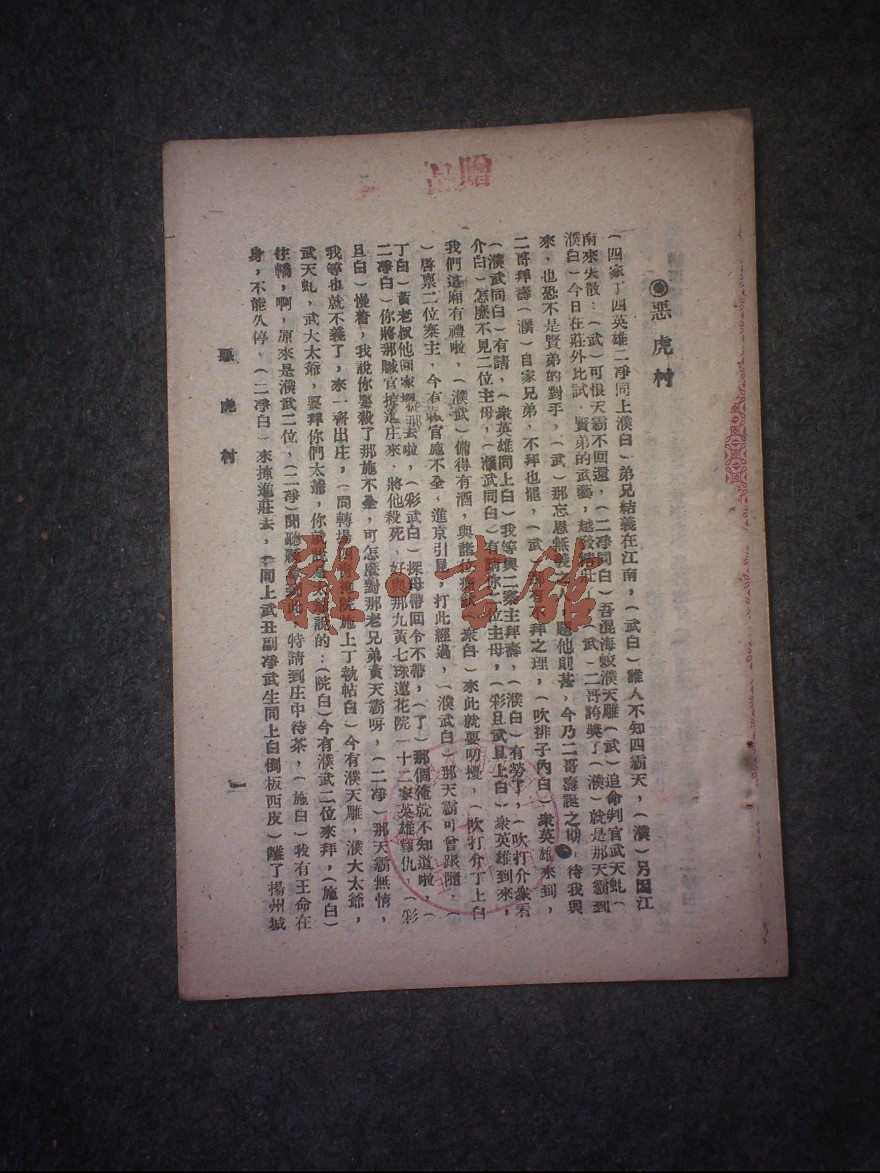 品贈
●惡虎村
（四家丁四英雄二淨同上濮白）弟兄結義在江南，（武白）誰人不知四霸天，（濮）另因江
南來失散：（武）可恨天霸不回還，（二淨同白）吾混海蛟濮天雕（武）追命判官武天虬（
濮白）今日在莊外比試，賢弟的武藝，越發（武）二哥誇獎了（濮）就是那天霸到
來，也恐不是賢弟的對手，（武）那忘恩無義之人，題他則甚，今乃二哥壽誕之期，待我與
二哥拜壽（濮）自家兄弟，不拜也罷，（武）有不拜之理，（吹排子內白）衆英雄來到，
（濮武同白）有請，（衆英雄同上白）我等與二寨主拜壽，（濮白）有勞了，（吹打介衆看
介白）怎麽不見二位主母，（濮武同白）有請你二位主母，（彩旦武旦上白）衆英雄到來，
我們這廂有禮啦，（濮武）備得有酒，與諸位（衆白）來此就要叨擾，（吹打介丁上白
）啓禀二位寨主，今有贓官施不全，進京引見，打此經過，（濮武白）那天霸可曾跟隨，（
丁白）黃老叔他回家探母去啦，（彩武白）探母帶回令不帶，（丁）那個俺就不知道啦，（
二淨白）你將那贓官搀進庄來，將他殺死，好與那九黃七珠蓮花院一十二家英雄報仇，（彩
旦白）慢着，我說你要殺了那施不全，可怎麽對那老兄弟黃天霸呀，（二淨）那天霸無情，
我等也就不義了，來一齊出庄，（同轉場四青袍院施上丁執帖白）今有濮天雕，濮大太爺，
武天虬，武大太爺，要拜你們太爺，你說的：（院白）今有濮武二位來拜，（施白）
住轎，啊，原來是濮武二位，（二淨）聞聽特請到庄中待茶，（施白）我有王命在
身，不能久停，（二淨白）來搀進莊去，（同上武丑副淨武生同上白倒板西皮）離了揚州城
惡虎村
一
雅·書館